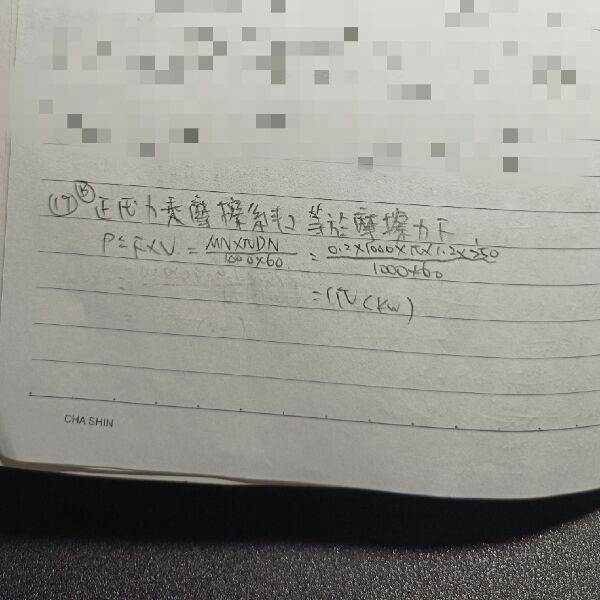 (17) B 正民力乘摩擦係數 等於摩擦力F
P≤F×V = μN×πDN / 1000×60 = 0.2×1000×π×1.2×250 / 1000×60
=1π(kw)
CHA SHIN